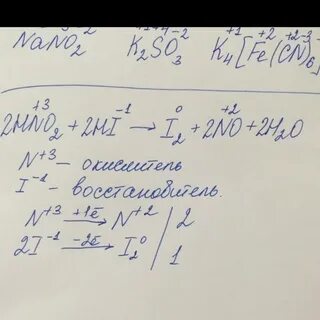 +3 +1+4-2 +1 +2 +2-3
NaNO₂ K₂SO₃ K₄[Fe(CN)₆
+3 -1 0 +2
2HNO₂ + 2HI → I₂ + 2NO + 2H₂O
N⁺³ — окислитель
I⁻¹ — восстановитель.
N⁺³ +1ē → N⁺² | 2
2I⁻¹ -2ē → I₂⁰ | 1